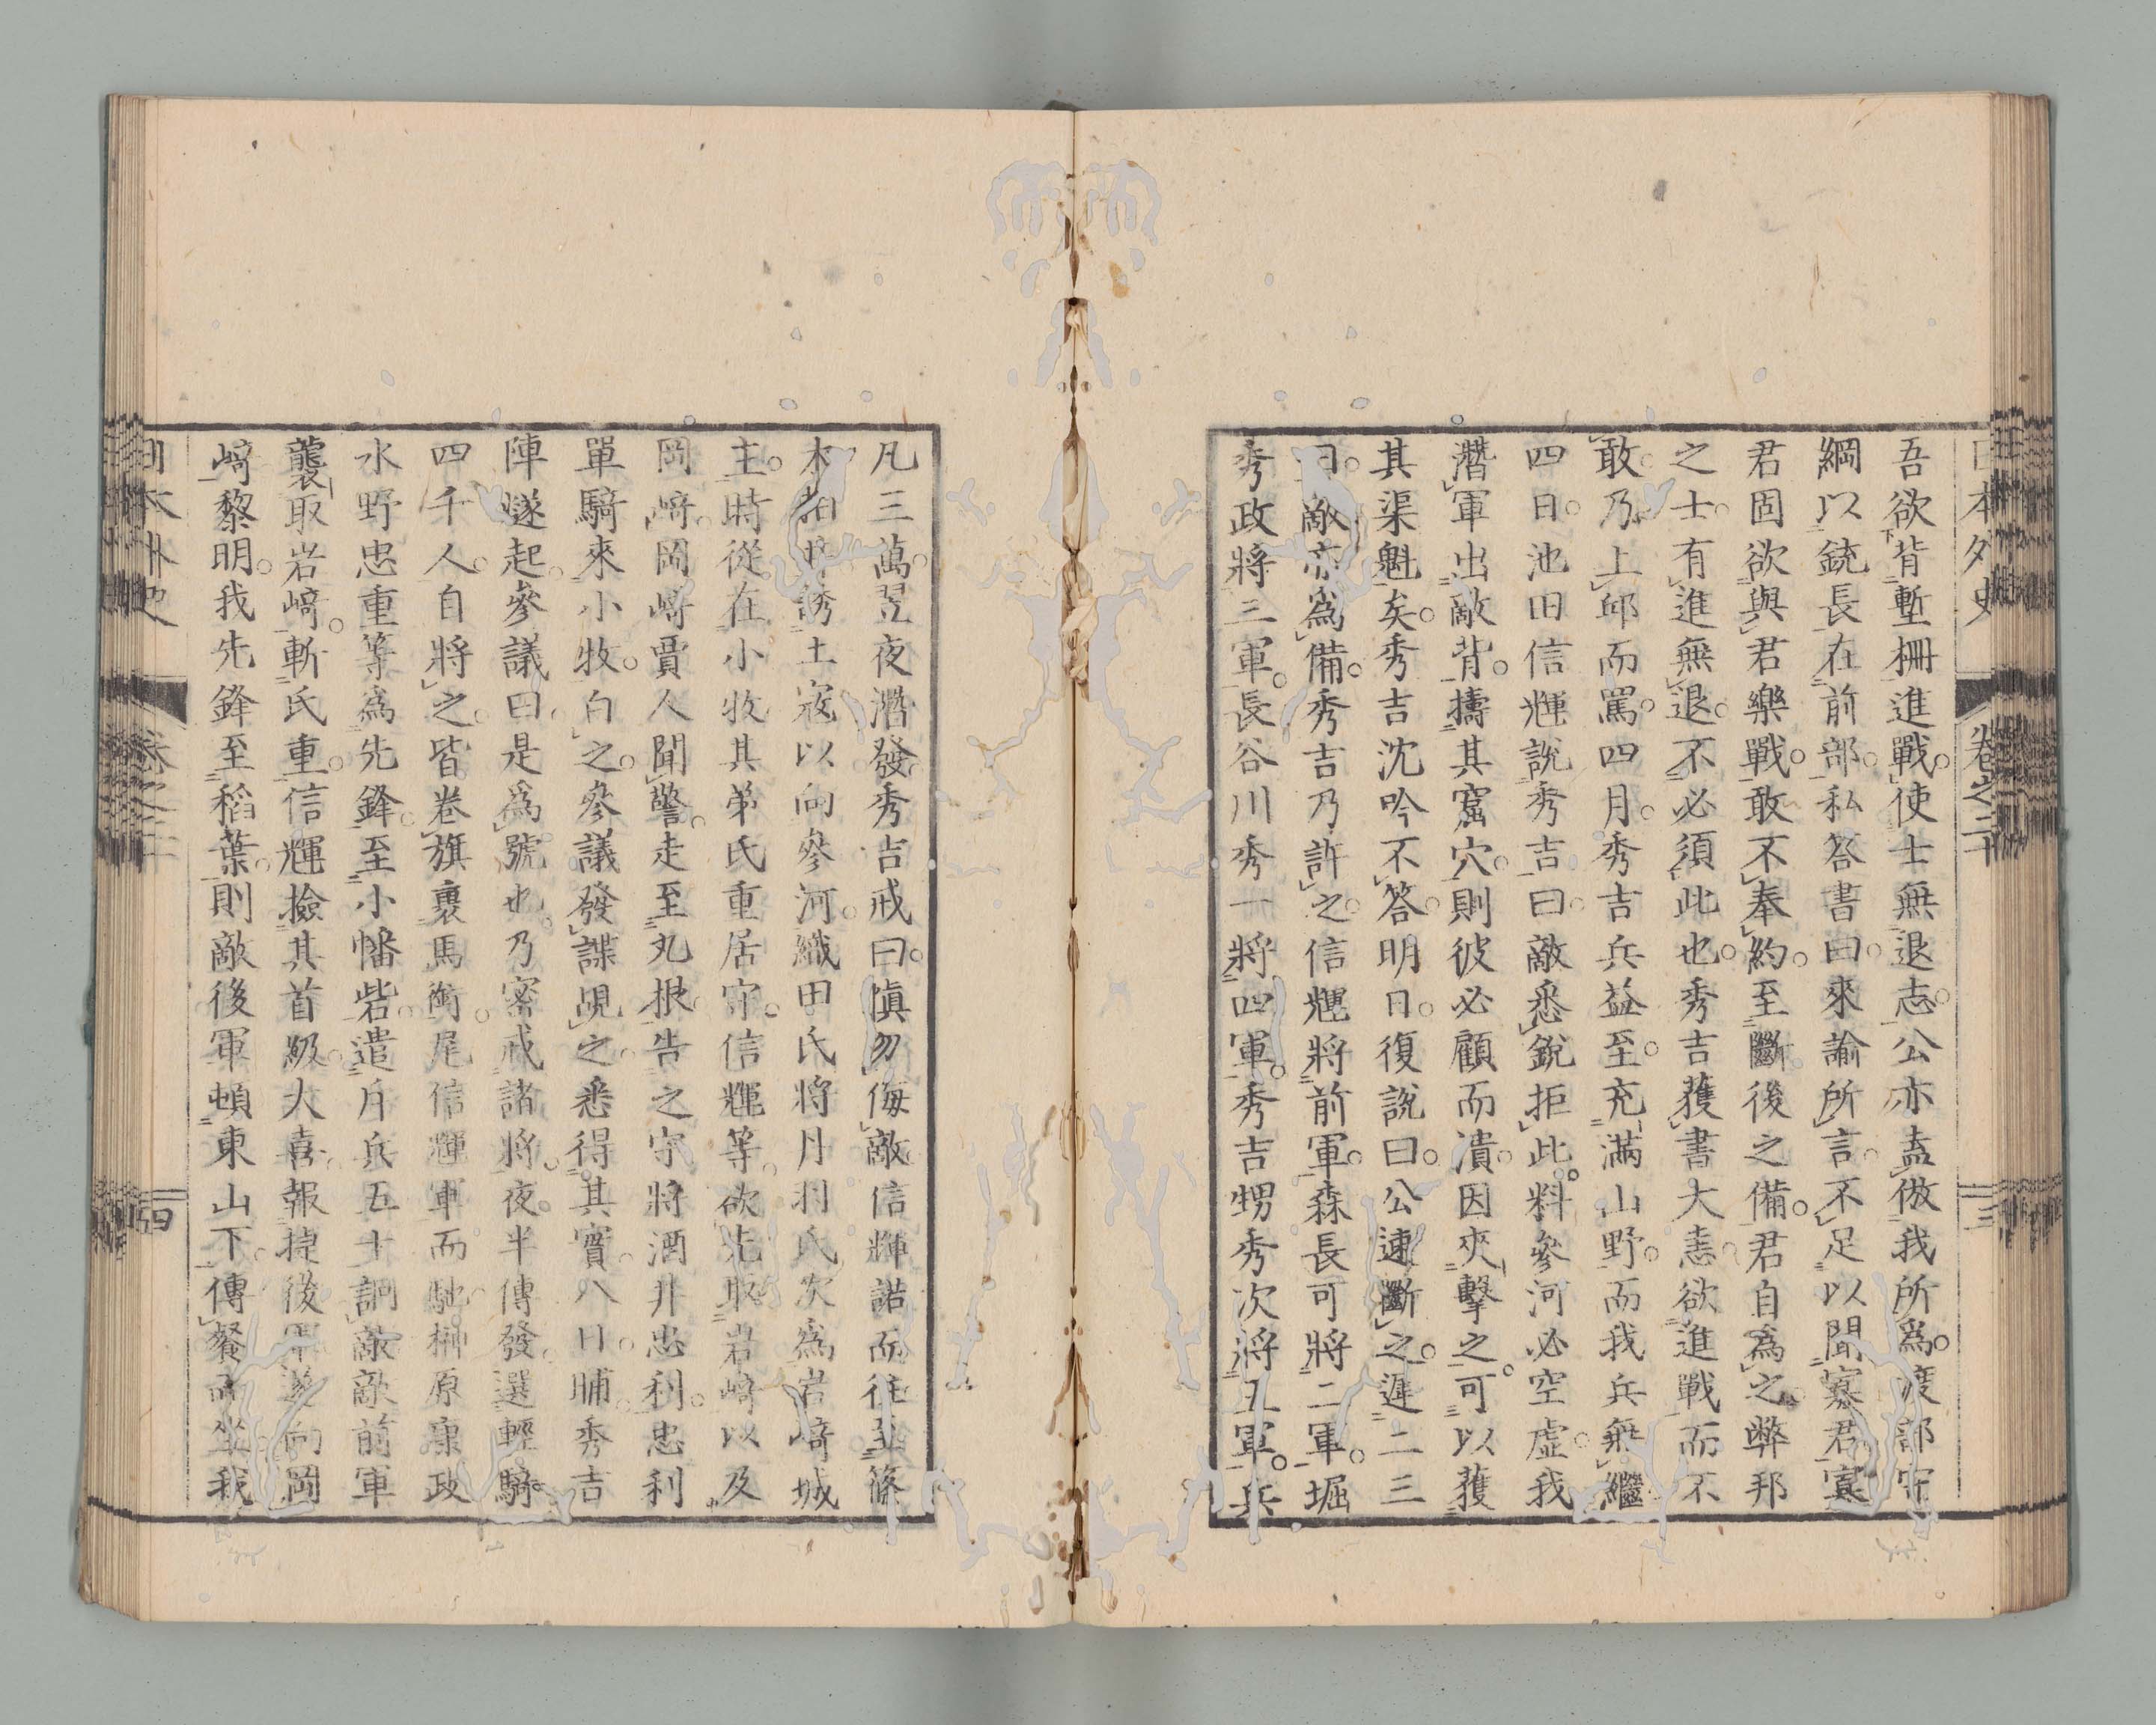 日本外史
卷之二十
三
吾欲背塹柵進戰使士無退志公亦盍倣我所爲渡部守
綱以銃長在前部私答書曰來諭所言不足以聞寡君寡
君固欲與君樂戰敢不奉約至斷後之備君自爲之弊邦
之士有進無退不必須此也秀吉獲書大恚欲進戰而不
敢乃上邱而罵四月秀吉兵益至充滿山野而我兵無繼
四日池田信輝說秀吉曰敵悉銳拒此料參河必空虛我
潛軍出敵背擣其窟穴則彼必顧而潰因夾擊之可以獲
其渠魁矣秀吉沈吟不答明日復說曰公速斷之遲二三
日敵亦爲備秀吉乃許之信輝將前軍森長可將二軍堀
秀政將三軍長谷川秀一將四軍秀吉甥秀次將五軍兵
凡三萬翌夜潛發秀吉戒曰愼勿侮敵信輝諾而往至篠
木柏井誘土寇以向參河織田氏將丹羽氏次爲岩﨑城
主時從在小牧其弟氏重居守信輝等欲先取岩﨑以及
岡﨑岡﨑賈人聞警走至丸根告之守將酒井忠利忠利
單騎來小牧白之參議發諜覘之悉得其實八日晡秀吉
陣燧起參議曰是爲號也乃密戒諸將夜半傳發選輕騎
四千人自將之皆卷旗裹馬銜尾信輝軍而馳榊原康政
水野忠重等爲先鋒至小幡砦遣斥兵五十詗敵敵前軍
襲取岩﨑斬氏重信輝撿其首級大喜報捷後軍遂向岡
﨑黎明我先鋒至稻葉則敵後軍頓東山下傳餐而坐我
日本外史
卷之二十
四